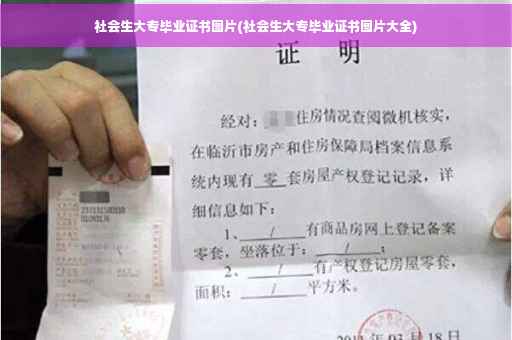 社会生大专毕业证书图片(社会生大专毕业证书图片大全)
证 明
经对: 住房情况查阅微机核实,
在临沂市房产和住房保障局档案信息系
统内现有 零 套房屋产权登记记录, 详
细信息如下:
1、 / 有商品房网上登记备案
零套, 坐落位于: / ;
2、 / 有产权登记房屋零套,
面积: / 平方米。
03月18日